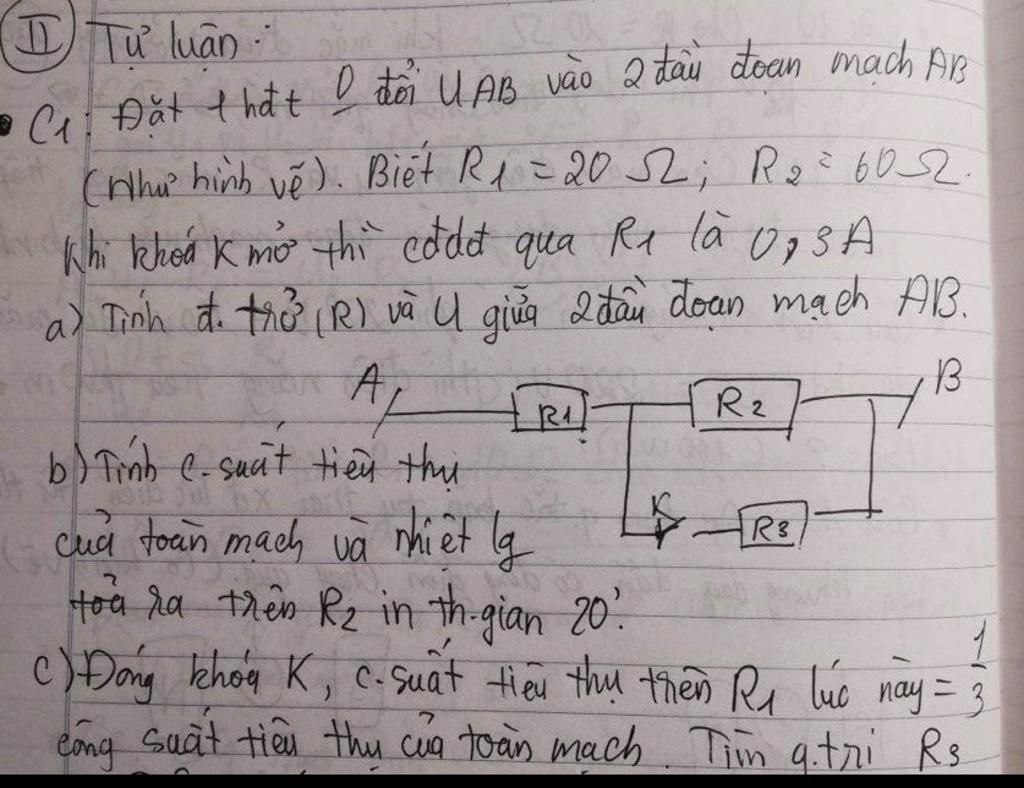 II Tự luận:
C1: Đặt 1 hđt 0 đổi UAB vào 2 đầu đoạn mạch AB
(Như hình vẽ). Biết R1 = 20 Ω; R2 = 60 Ω.
Khi khoá K mở thì cđdđ qua R1 là 0,3A
a) Tính đ. trở (R) và U giữa 2 đầu đoạn mạch AB.
A R1 R2 B
K R3
b) Tính c. suất tiêu thụ
của toàn mạch và nhiệt lg
toả ra trên R2 in th.gian 20'.
c) Đóng khóa K, c. suất tiêu thụ trên R1 lúc này = 1/3
công suất tiêu thụ của toàn mạch. Tìm g.trị R3